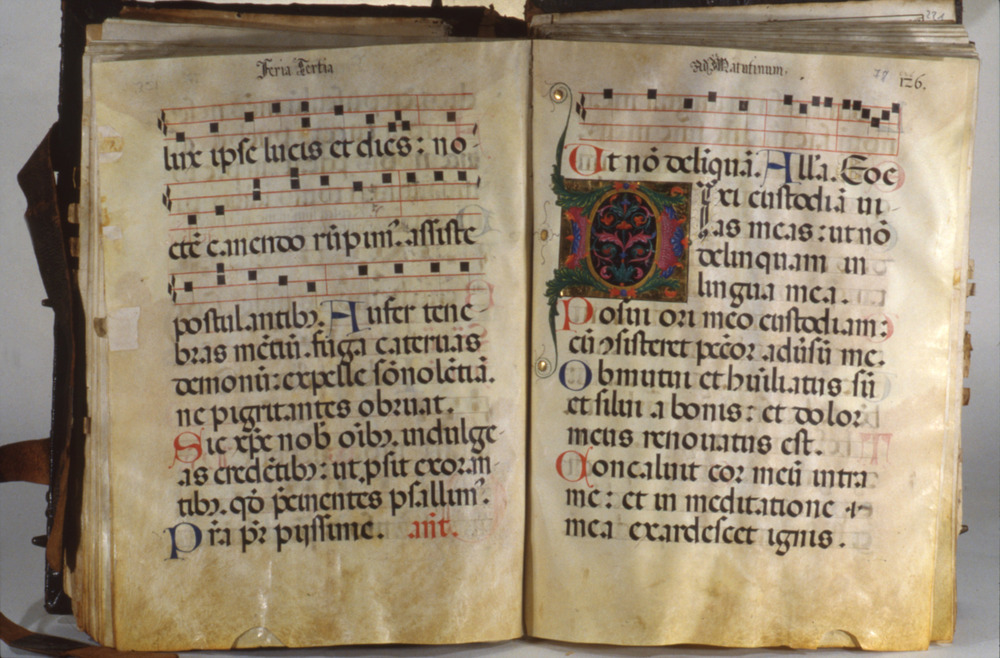 Feria Tertia
lux ipse lucis et dies: no-
ctē canendo rūpim᷒. assiste
postulantibꝫ. Aufer tene-
bras mētiū. fuga cateruas
demonū: expelle sōnolētiā.
ne pigritantes obruat.
Sic xp̄e nob̄ oībꝫ. indulge-
as credētibꝫ: ut ꝓsit exoran-
tibꝫ. qd̄ p̄cinentes psallim᷒.
Pr̄a pr̄ pijssime. an̄t.
Ad Matutinum.
78 126.
Ut nō deliquā. Allā. Eoc
Dixi custodiā ui-
as meas: ut nō
delinquam in
lingua mea.
Posui ori meo custodiam:
cū ↄsisteret pēcōr adūsū me.
Obmutui et hūiliatus sū
et silui a bonis: et dolor
meus renouatus est.
Concaluit cor meū intra
me: et in meditatione
mea exardescet ignis.